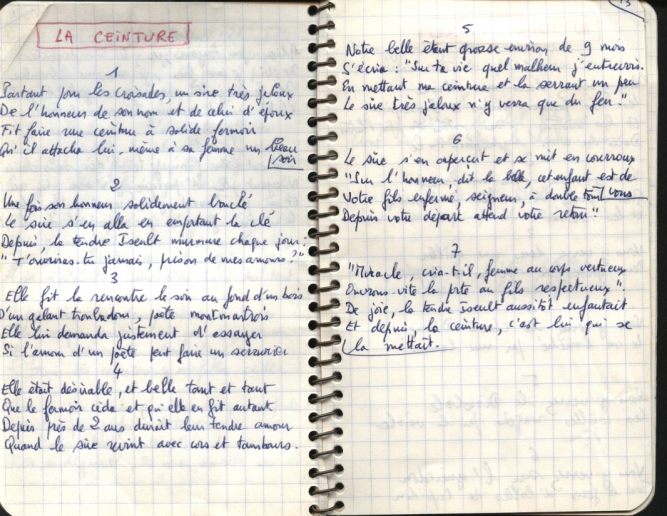 LA CEINTURE
1
Partant pour les Croisades, un sire très jaloux
De l'honneur de son nom et de celui d'époux
Fit faire une ceinture à solide fermoir
Qu'il attacha lui-même à sa femme un beau
soir
2
Une fois son honneur solidement bouclé
Le sire s'en alla en emportant la clé
Depuis, la tendre Iseult murmure chaque jour :
" T'ouvriras-tu jamais, prison de mes amours ?"
3
Elle fit la rencontre le soir au fond d'un bois
D'un galant troubadour, poète montmartrois
Elle lui demanda justement d'essayer
Si l'amour d'un poète peut faire un serrurier
4
Elle était désirable, et belle tant et tant
Que le fermoir céda et qu'elle en fit autant
Depuis près de 2 ans durait leur tendre amour
Quand le sire revint avec cors et tambours.
13
5
Notre belle étant grosse environ de 9 mois
S'écria : "Sur ta vie quel malheur j'entrevois.
En mettant ma ceinture et la serrant un peu
Le sire très jaloux n'y verra que du feu."
6
Le sire s'en aperçut et se mit en courroux
"Sur l'honneur, dit la belle, cet enfant est de
vous
Votre fils enfermé, seigneur, à double tour
Depuis votre départ attend votre retour"
7
"Miracle, cria-t-il, femme au corps vertueux
Ouvrons vite la porte au fils respectueux".
De joie, la tendre Iseult aussitôt enfantait
Et depuis, la ceinture, c'est lui qui se
la mettait.